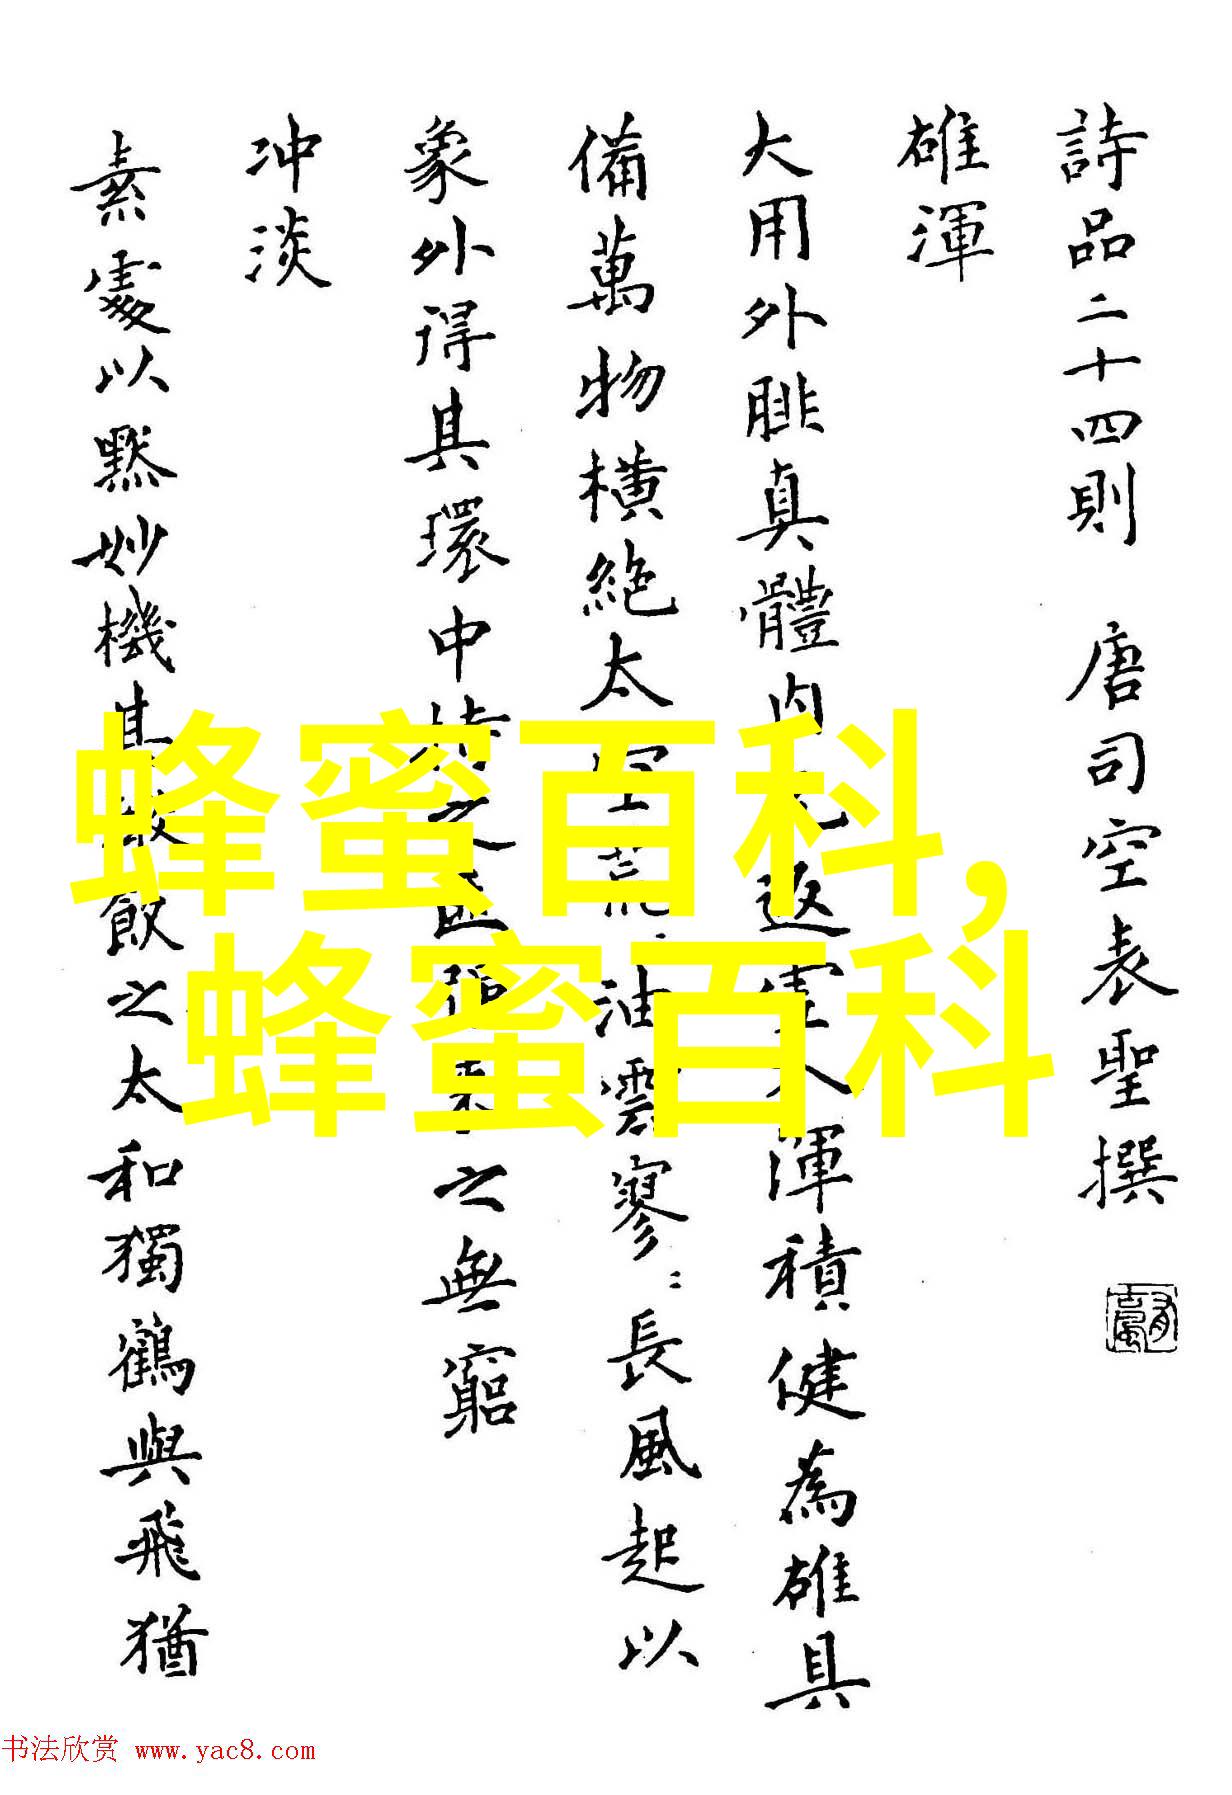 詩品二十四則 唐司空表聖撰
雄渾
大用外腓真體内返虛入渾積健為雄具
備萬物橫絶太空荒油雲寥:長風起以
象外得其環中持之匪強来之無窮
冲淡
素處以黙妙機其飲之太和獨鶴與飛猶
蜂蜜百科,
蜂蜜百科
书法欣赏 www.yac8.com